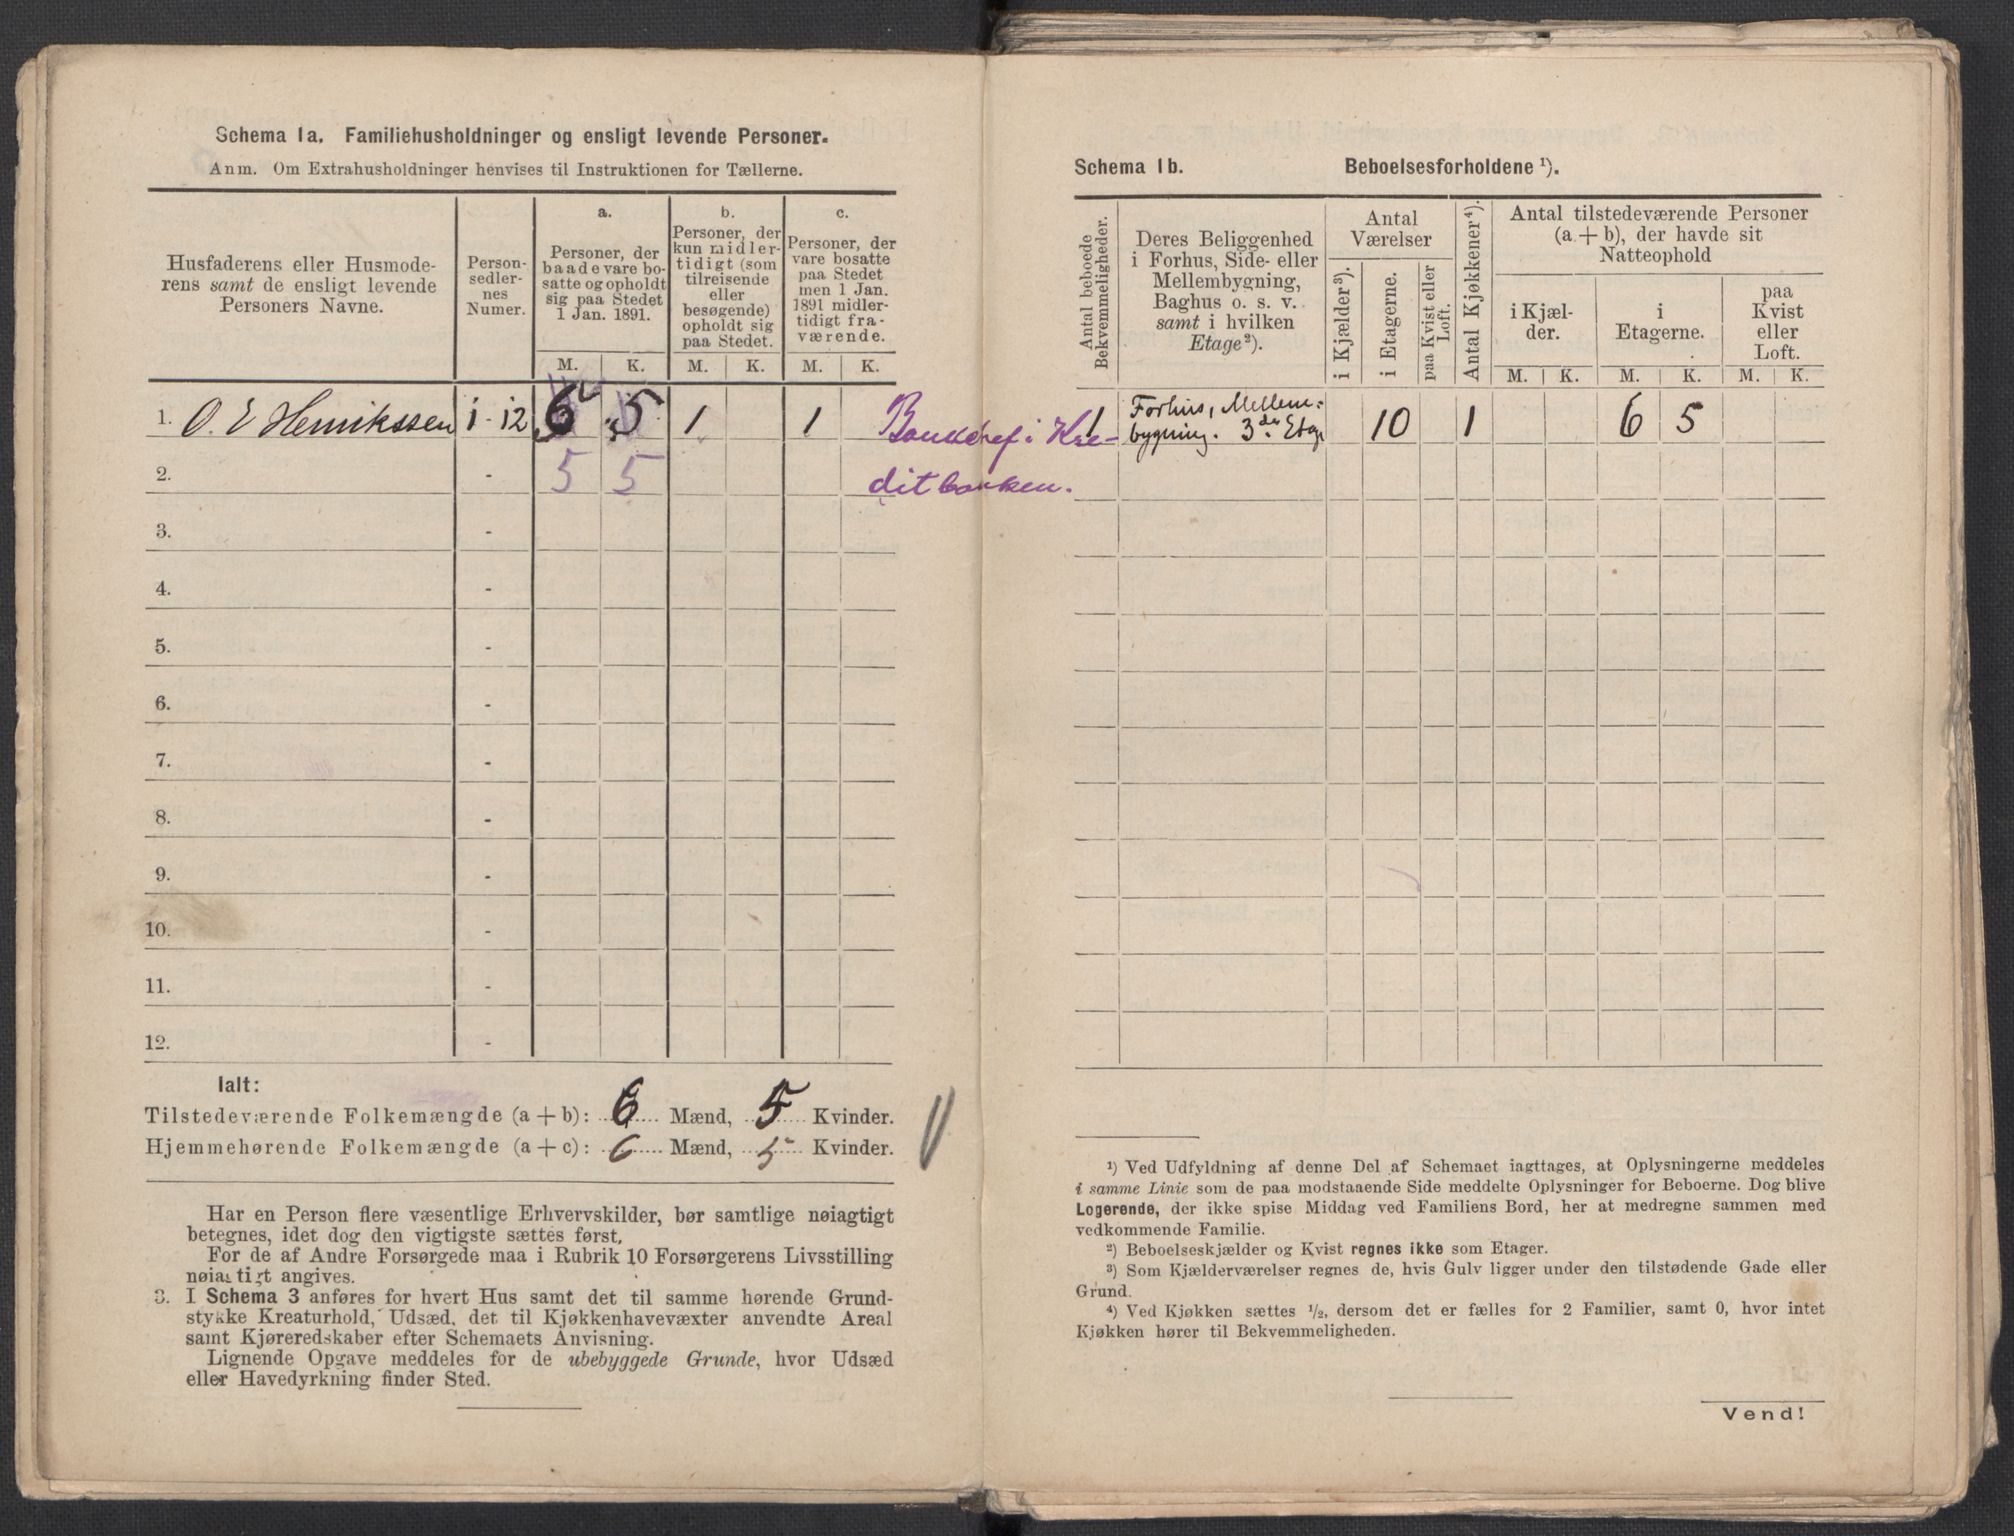 Schema 1a. Familiehusholdninger og ensligt levende Personer.
Anm. Om Extrahusholdninger henvises til Instruktionen for Tællerne.
Husfaderens eller Husmode-
rens samt de ensligt levende
Personers Navne.
Person-
sedler-
nes
Numer.
a.
Personer, der
baade vare bo-
satte og opholdt
sig paa Stedet
1 Jan. 1891.
b.
Personer, der
kun midler-
tidigt (som
tilreisende
eller
besøgende)
opholdt sig
paa Stedet.
c.
Personer, der
vare bosatte
paa Stedet
men 1 Jan.
1891 midler-
tidigt fra-
værende.
M. K. M. K. M. K.
1. O. E Henrikssen 1 - 12 5 1 1 Bankchef i Kre-
2. - 5 5 ditbanken.
3. -
4. -
5. -
6. -
7. -
8. -
9. -
10. -
11. -
12. -
Ialt:
Tilstedeværende Folkemængde (a + b): 6 Mænd, 5 Kvinder.
Hjemmehørende Folkemængde (a + c): 6 Mænd, 5 Kvinder.
Har en Person flere væsentlige Erhvervskilder, bør samtlige nøiagtigt
betegnes, idet dog den vigtigste sættes først.
For de af Andre Forsørgede maa i Rubrik 10 Forsørgerens Livsstilling
nøiagtigt angives.
3. I Schema 3 anføres for hvert Hus samt det til samme hørende Grund-
stykke Kreaturhold, Udsæd, det til Kjøkkenhavevæxter anvendte Areal
samt Kjøreredskaber efter Schemaets Anvisning.
Lignende Opgave meddeles for de ubebyggede Grunde, hvor Udsæd
eller Havedyrkning finder Sted.
Schema 1b. Beboelsesforholdene ¹).
Antal beboede
Bekvemmeligheder.
Deres Beliggenhed
i Forhus, Side- eller
Mellembygning,
Baghus o. s. v.
samt i hvilken
Etage²).
Antal
Værelser
i Kjælder³).
i Etagerne.
paa Kvist eller
Loft.
Antal Kjøkkener⁴).
Antal tilstedeværende Personer
(a + b), der havde sit
Natteophold
i Kjæl-
der.
i
Etagerne.
paa
Kvist
eller
Loft.
M. K. M. K. M. K.
1 Forhus, Mellem-
bygning. 3de Etage 10 1 6 5
¹) Ved Udfyldning af denne Del af Schemaet iagttages, at Oplysningerne meddeles
i samme Linie som de paa modstaaende Side meddelte Oplysninger for Beboerne. Dog blive
Logerende, der ikke spise Middag ved Familiens Bord, her at medregne sammen med
vedkommende Familie.
²) Beboelseskjælder og Kvist regnes ikke som Etager.
³) Som Kjælderværelser regnes de, hvis Gulv ligger under den tilstødende Gade eller
Grund.
⁴) Ved Kjøkken sættes ¹/₂, dersom det er fælles for 2 Familier, samt 0, hvor intet
Kjøkken hører til Bekvemmeligheden.
Vend!